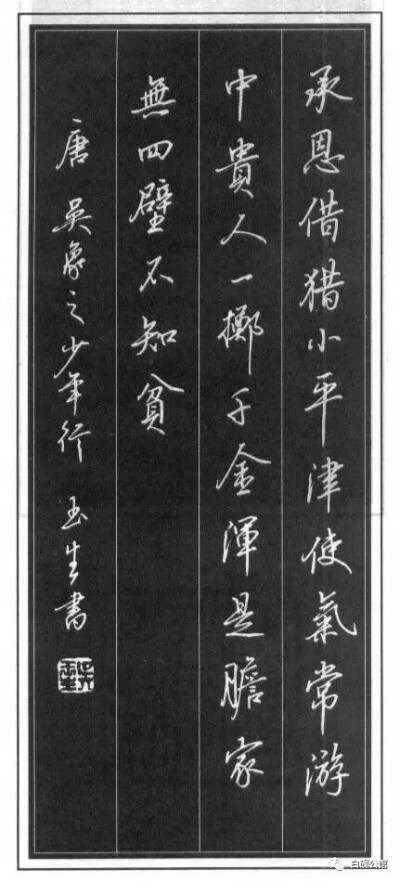 承恩借猎小平津使氣常游
中貴人一擲千金渾是膽家
無四壁不知貧
唐 吴象之少年行 玉生書